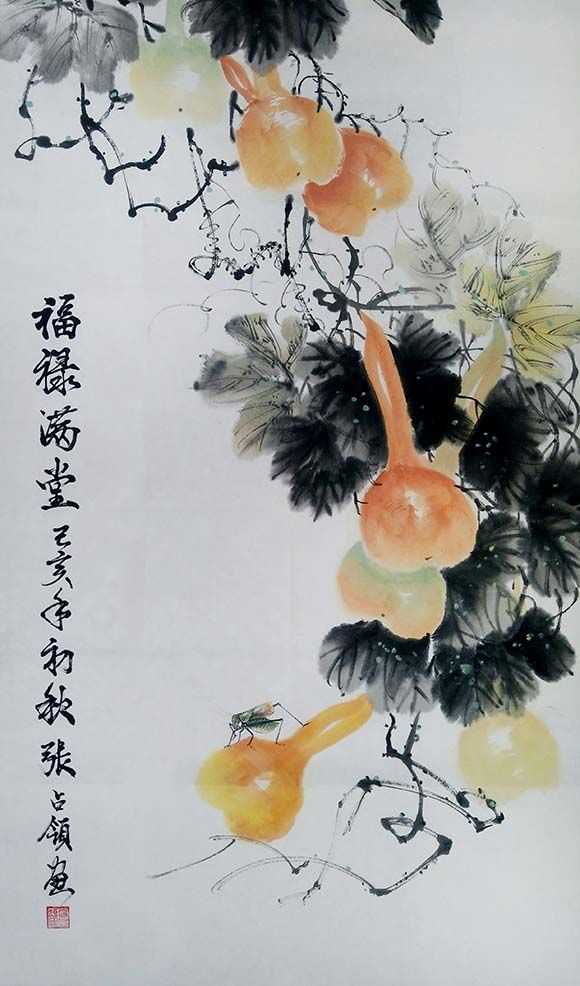 福禄满堂 己亥年初秋 张占领画